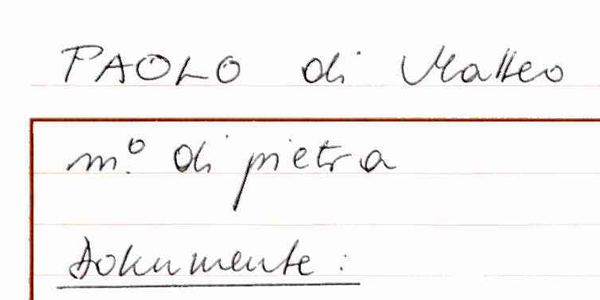 PAOLO di Matteo
m.º di pietra
Dokumente: